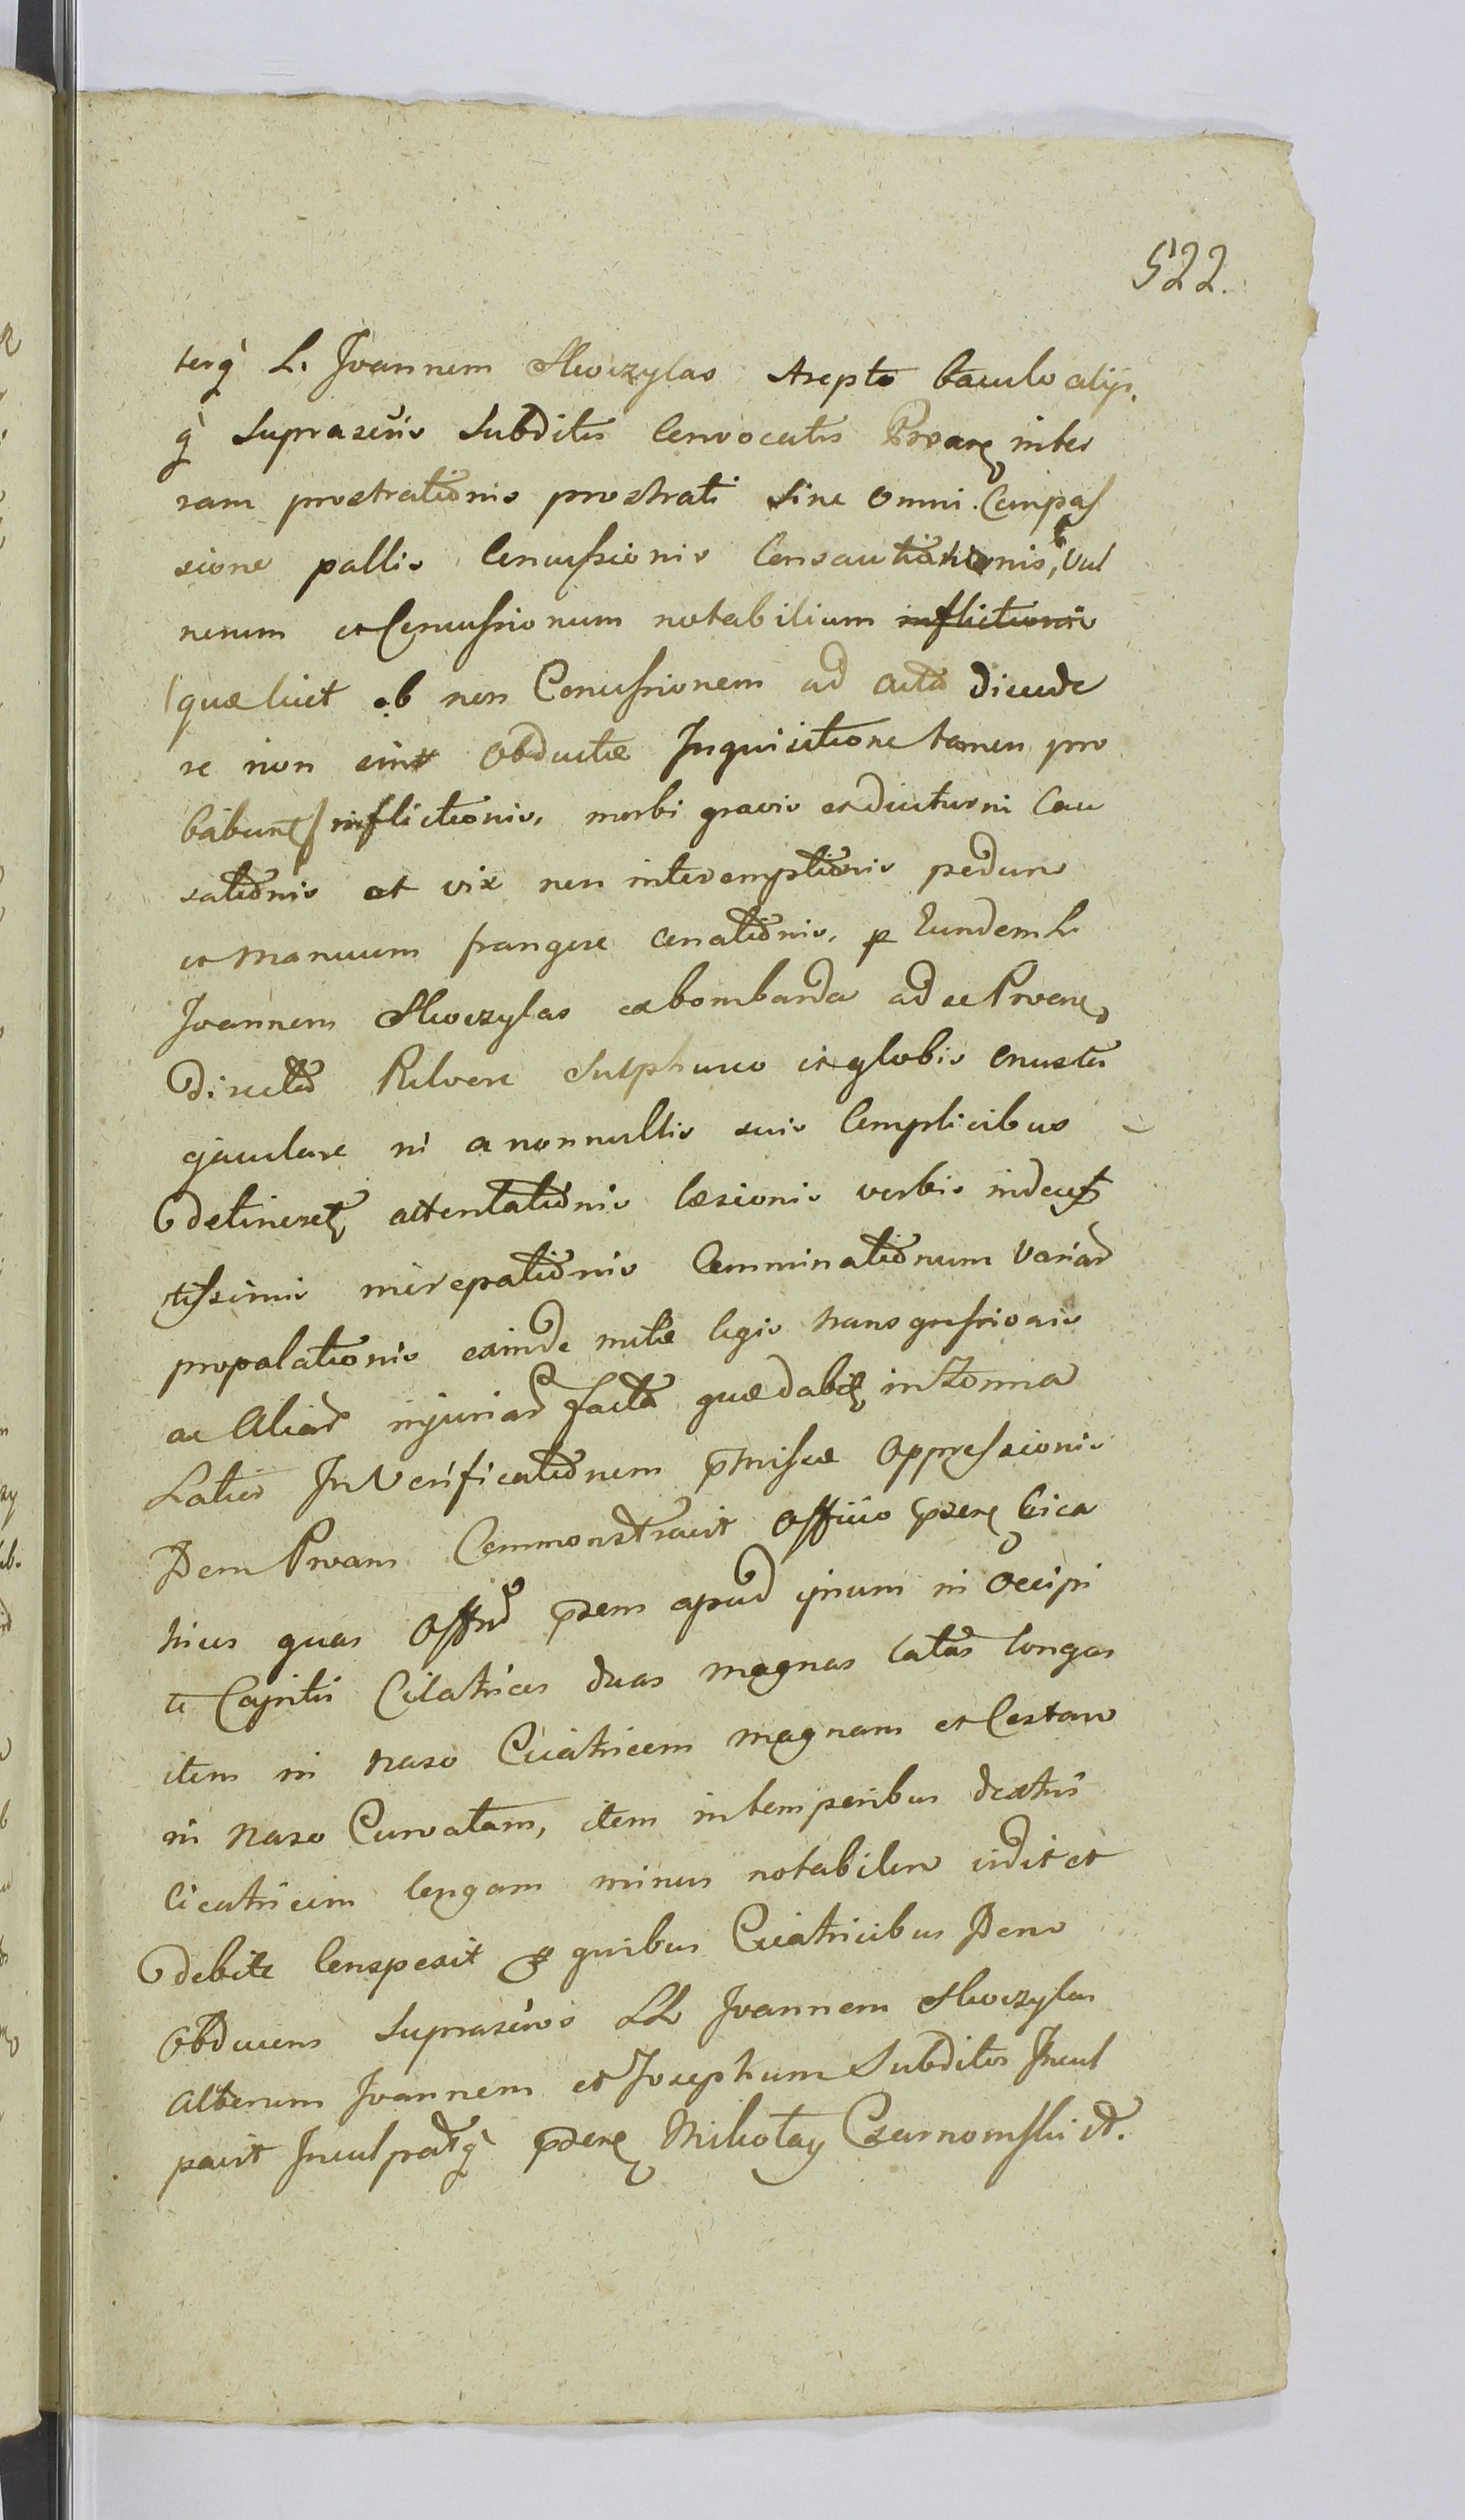 522.
terq̀ L. Joannem Skwizylas Arepto baculo alijs
q̀ Suprascris Subditis Convocatis Protane in ter
ram prostrationis prostrati Sine omni Compas
sione pallis Concussionis Consautiationis, Vul
nerum et Concussionum notabilium inflictionis
(quæ licet ob non Concussionem ad acta dicede
re non sint Obductæ Inquisitione tamen pro
babunt) inflictionis, morbi gravis et diuturni Cau
sationis et vix non interemptionis pedum
et Manuum frangere Conationis, p Eundem L.
Joannem Skwizylas ex bombarda ad se Protane
Directa Pulvere Sulphureo et globis Onusta
ejaculare ni a nonnullis suis Complicibus
detineret attentationis læsionis verbis indecen
tissimis increpationis Comminationum Variar
propalationis exinde multæ legis transgressionis
ac Aliar injuriar facta quæ dabit in Zomia
Latius In Verificationem pmissæ Oppressionis
Dem Protans Commonstravit Officio psene Cica
trices quas Offm psem apud ipsum in Occipi
te Capitis Cicatrices duas magnas latas longas
item in Naso Cicatricem magnam et Costam
in Naso Curvatam, item in temporibus dextris
Cicatricem longam minus notabilem vidit et
debite Conspexit p quibus Cicatricibus Dem
Obducens Suprascros LL Joannem Skwizylas
Alterum Joannem et Josephum Subditos Incul
pavit Inculpatq̀ psene Mikołay Czarnomski st.